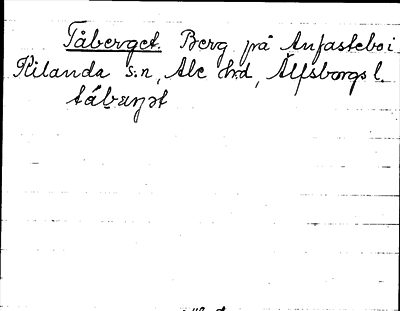 Tåberget. Berg på Anfastebo i
Kilanda s:n, Ale hd, Älfsborgs l.